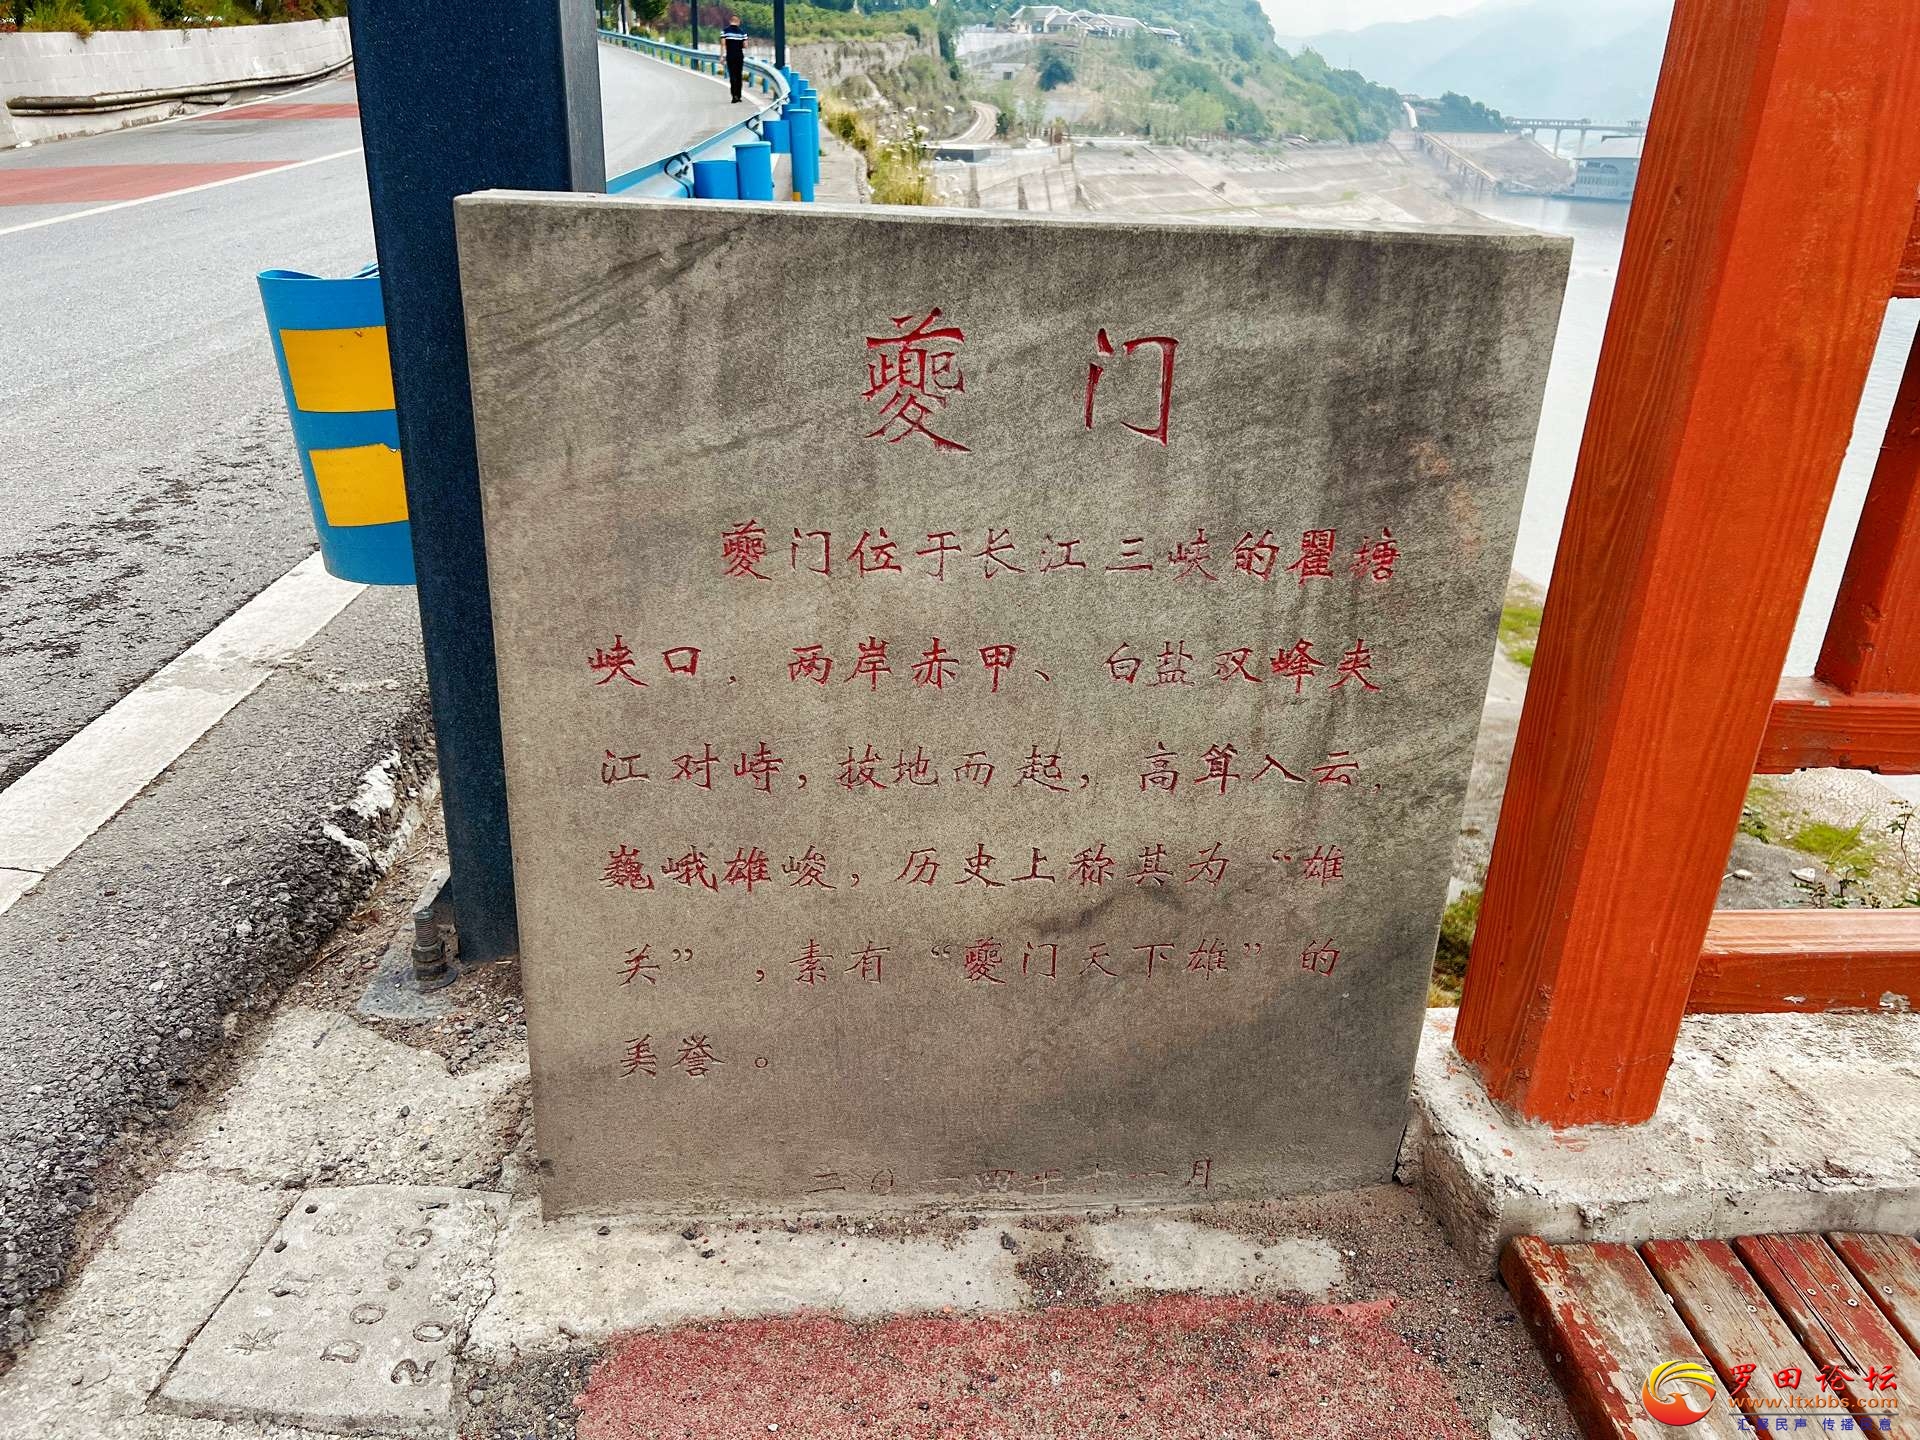 夔门
夔门位于长江三峡的瞿塘
峡口，两岸赤甲、白盐双峰夹
江对峙，拔地而起，高耸入云，
巍峨雄峻，历史上称其为“雄
关”，素有“夔门天下雄”的
美誉。
二〇一四年十一月
罗田论坛
www.ltxbbs.com